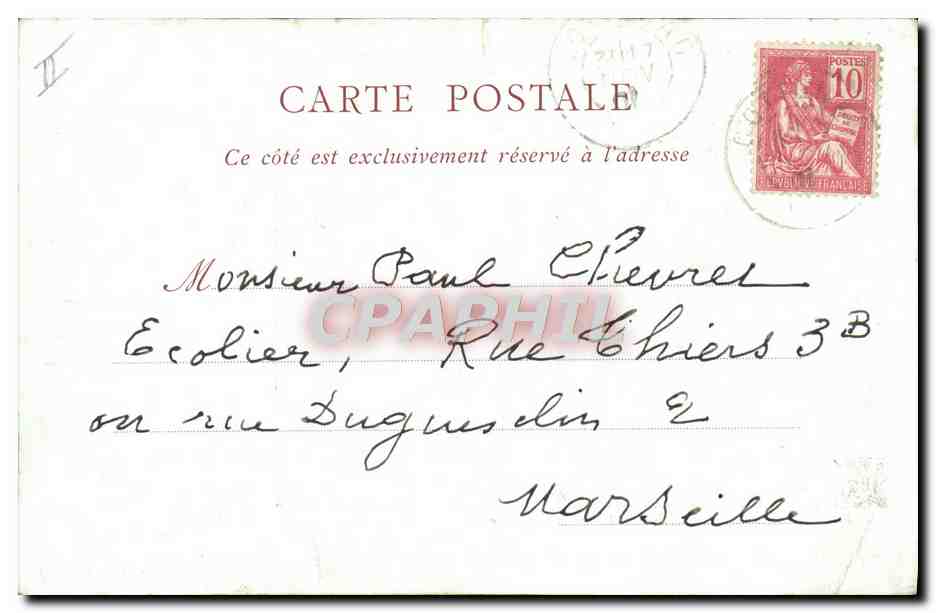 II
CARTE POSTALE
POSTES
10
Ce côté est exclusivement réservé à l'adresse
REPVBLIQVE FRANÇAISE
Monsieur Paul Chevret
CPAPHIL
Ecolier, Rue Thiers 3B
ou rue Duguesclin 2
Marseille